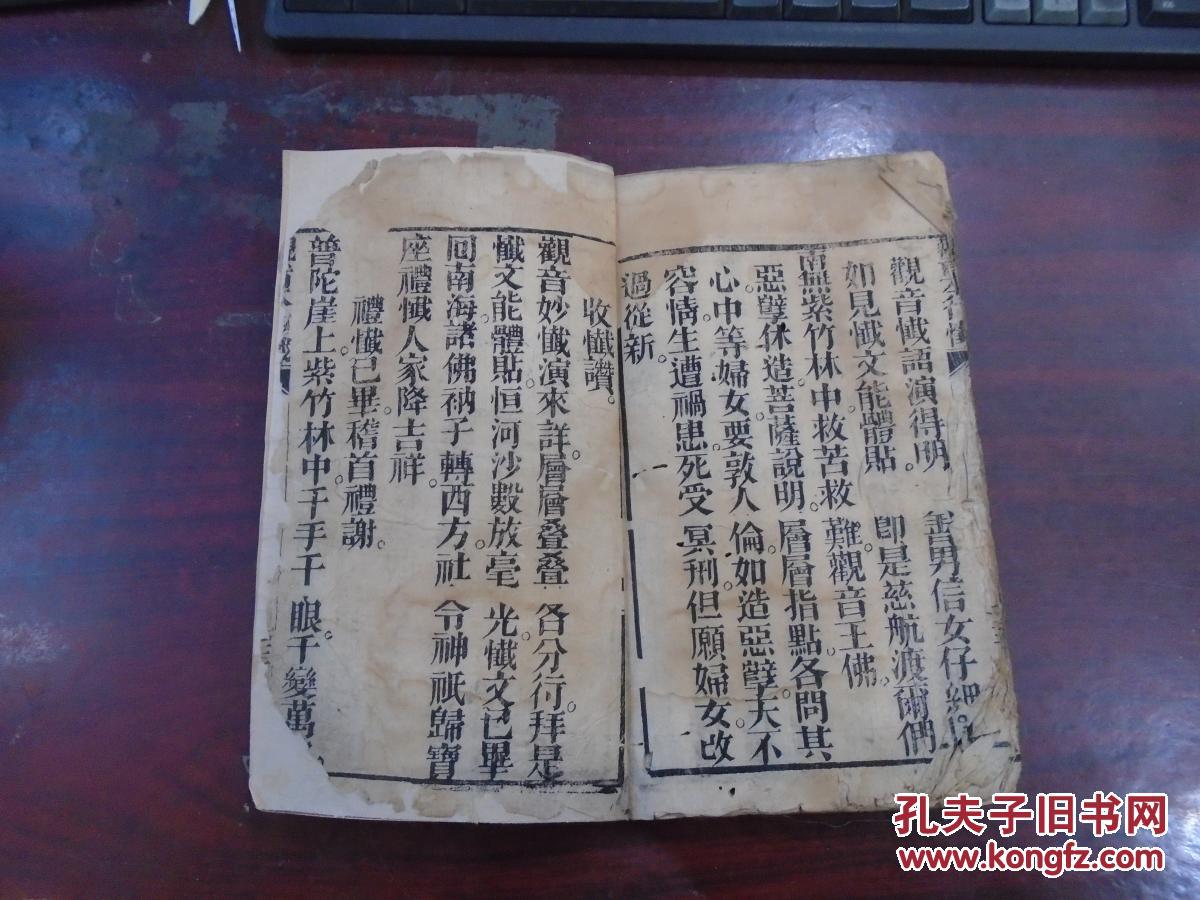 觀音懺語演得明。 善男信女仔細
如見懺文能體貼 卽是慈航渡爾們
南無紫竹林中救苦救難。觀音王佛。
惡孽休造菩薩說明。層層指點各問其
心中等婦女。要敦人倫如造惡孽。天不
容情生遭禍患死受冥刑。但願婦女改
過從新。
收懺讚。
觀音妙懺演來詳。層層叠叠各分行。拜是
懺文能體貼。恒河沙數放毫光。懺文已畢
回南海。諸佛衲子轉西方。社令神祇歸寶
座。禮懺人家降吉祥。
禮懺已畢。稽首禮謝。
普陀崖上紫竹林中千手千眼。千變萬
孔夫子旧书网
www.kongfz.com